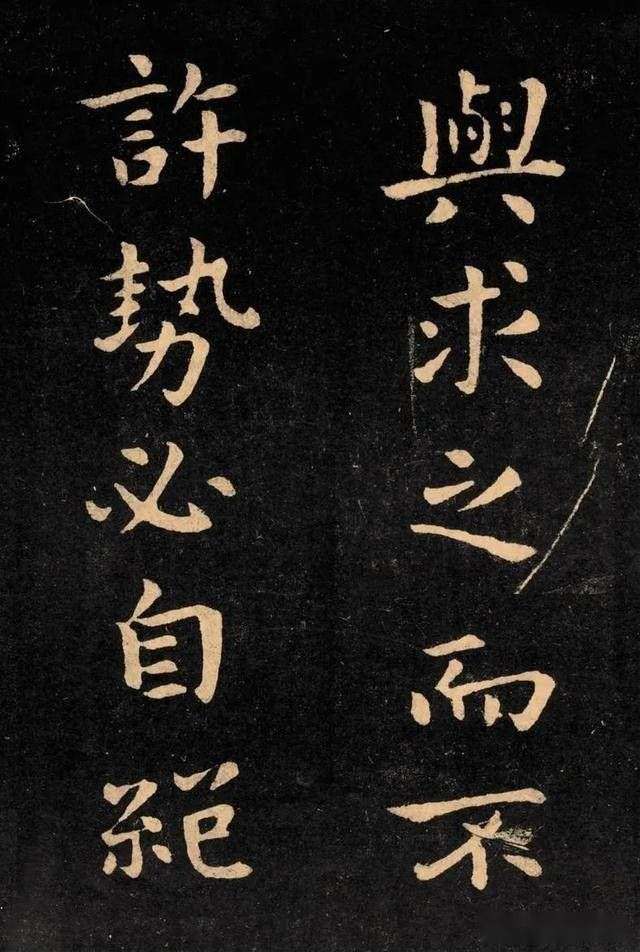 與求之而不
許勢必自絕